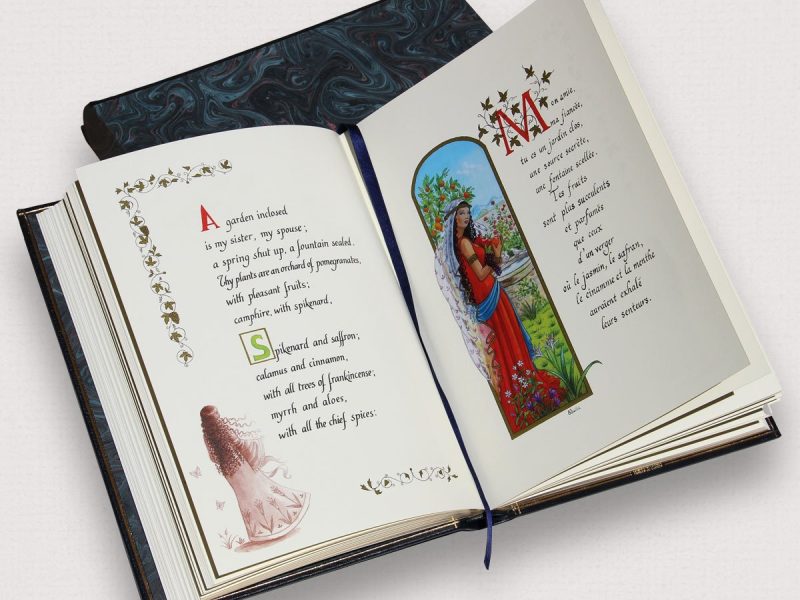 A garden inclosed
is my sister, my spouse;
a spring shut up, a fountain sealed.
Thy plants are an orchard of pomegranates,
with pleasant fruits;
camphire, with spikenard,
Spikenard and saffron;
calamus and cinnamon,
with all trees of frankincense;
myrrh and aloes,
with all the chief spices:
Mon amie,
ma fiancée,
tu es un jardin clos,
une source secrète,
une fontaine scellée.
Tes fruits
sont plus succulents
et parfumés
que ceux
d'un verger
où le jasmin, le safran,
le cinnamme et la menthe
auraient exhalé
leurs senteurs.